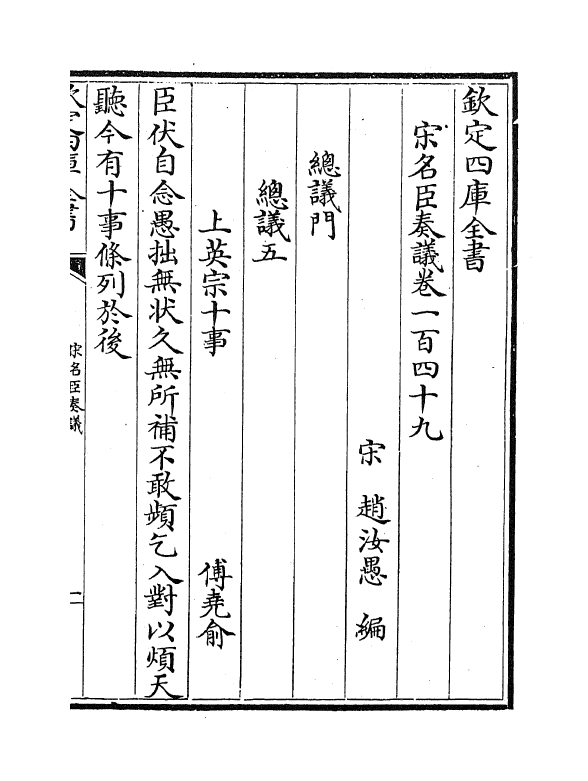 欽定四庫全書
宋名臣奏議卷一百四十九
宋 趙汝愚 編
總議門
總議五
上英宗十事 傅堯俞
臣伏自念愚拙無状久無所補不敢頻乞入對以煩天
聽今有十事條列於後
欽定四庫全書
宋名臣奏議